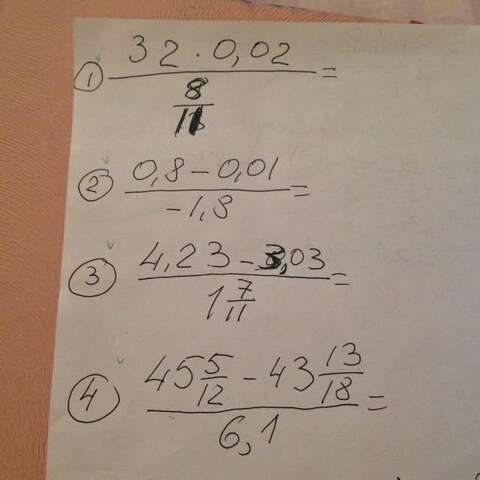 ① 32 · 0,02 =
8
11
② 0,8 - 0,01 =
-1,8
③ 4,23 - 3,03 =
1 7/11
④ 45 5/12 - 43 13/18 =
6,1